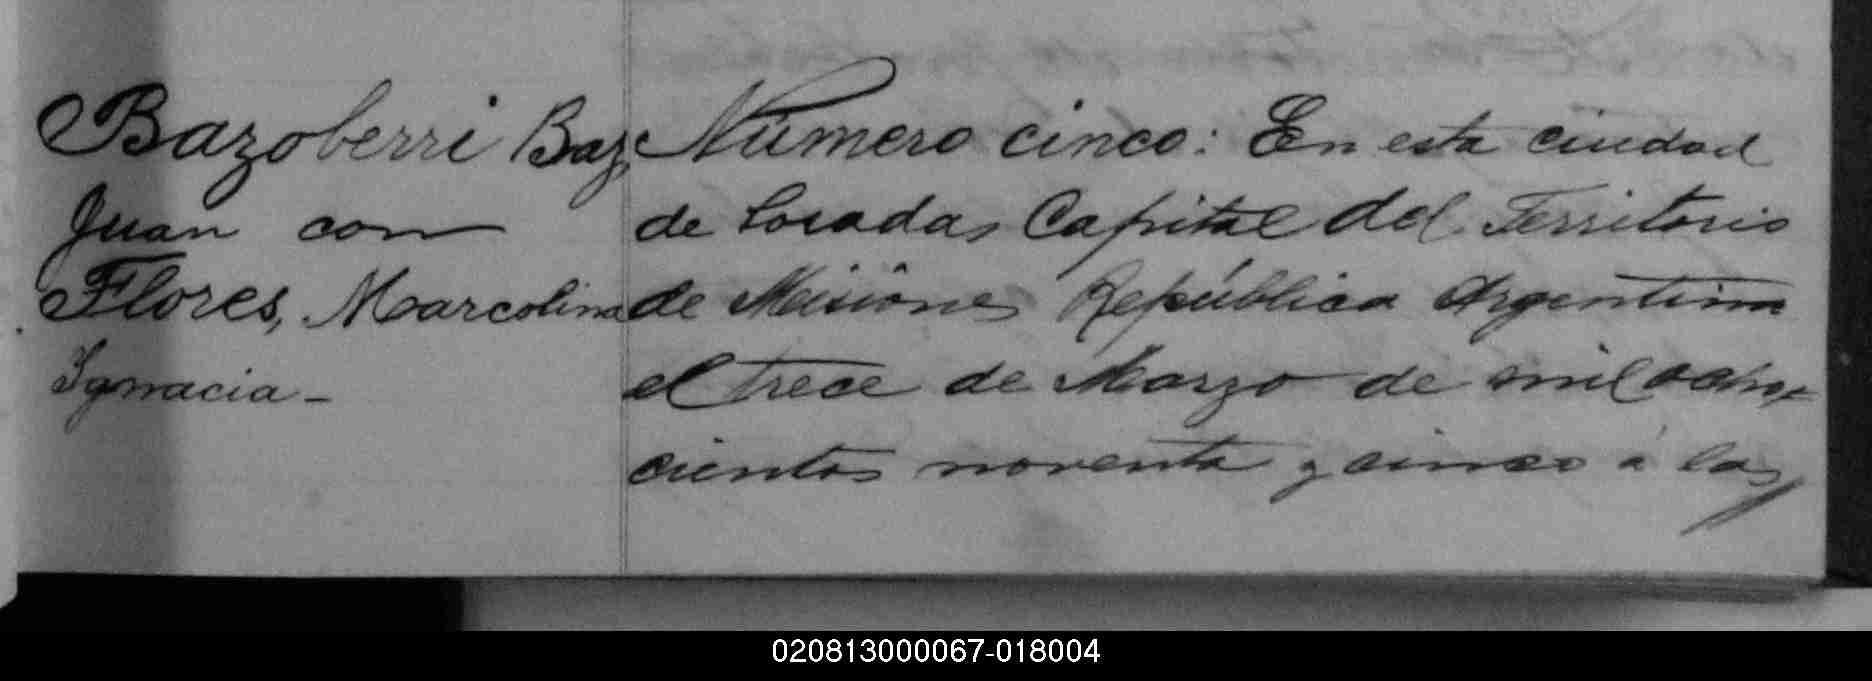 Bazoberri Baz,
Juan con
Flores, Marcolina
Ygnacia -
Número cinco: En esta ciudad
de Posadas Capital del Territorio
de Misiones República Argentina
el trece de Marzo de mil ocho-
cientos noventa y cinco á las
020813000067-018004